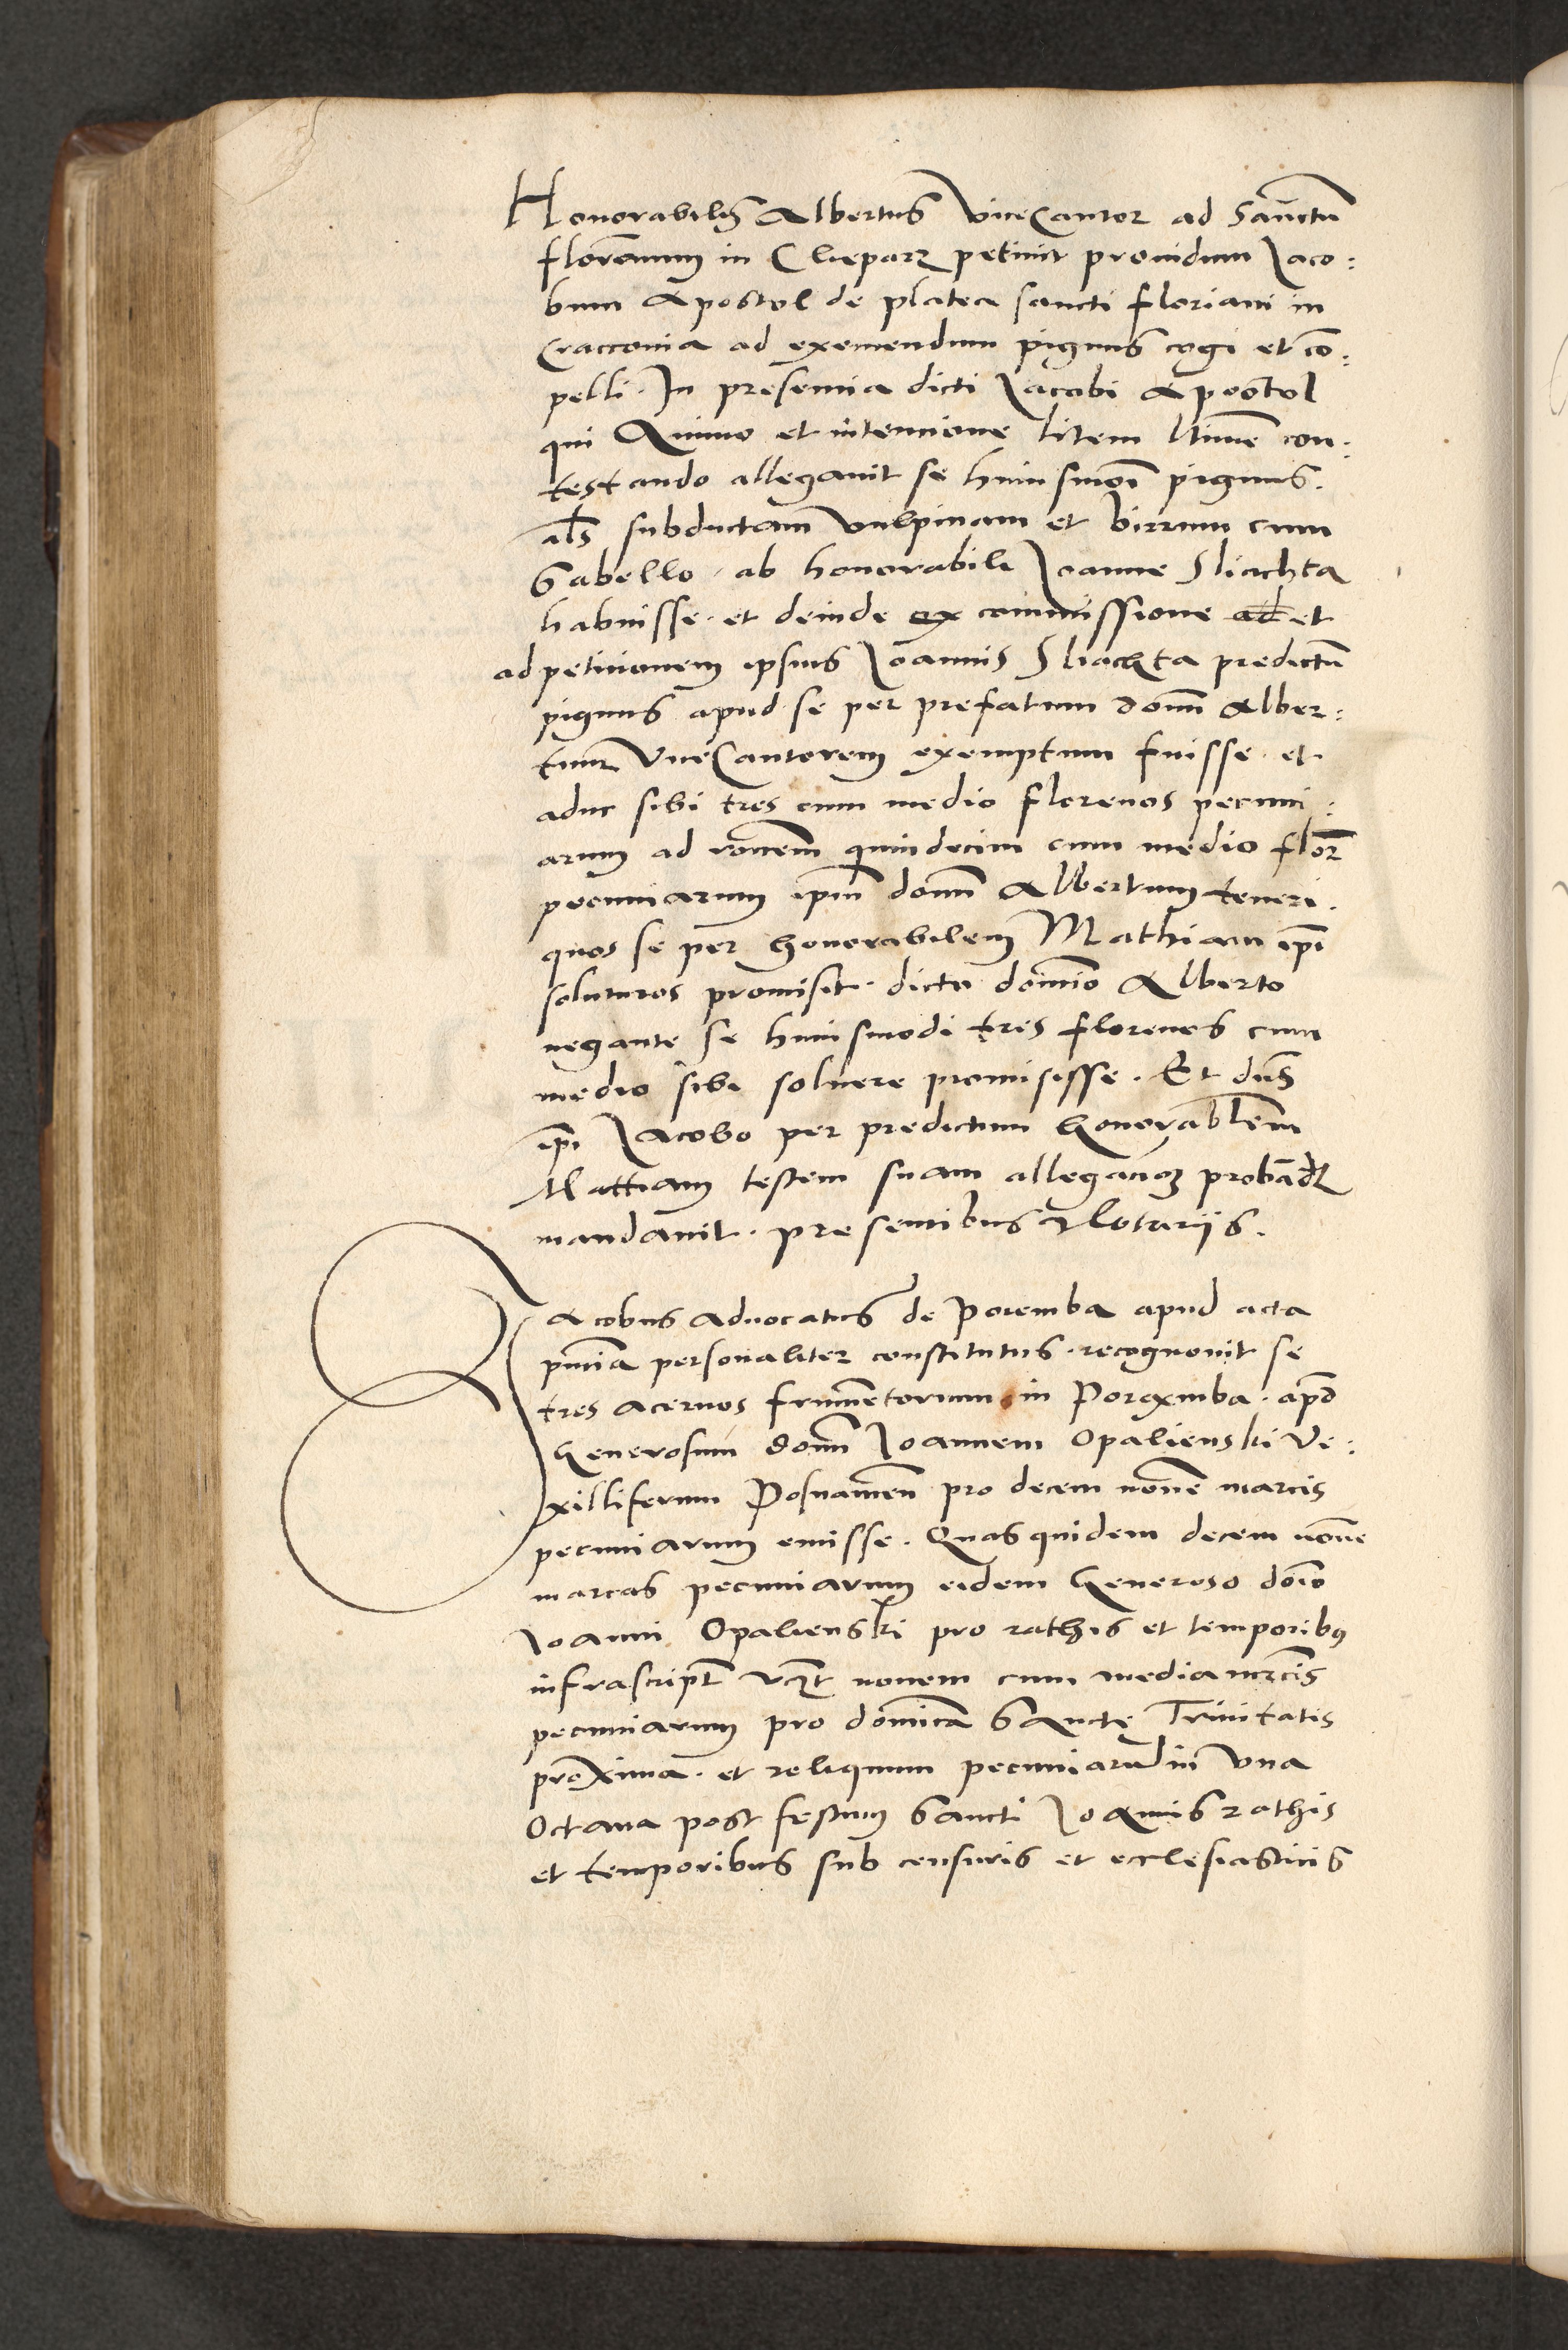 Honorabilis Albertus ViceCantor ad Sanctu
florianum in Clepar petiuit prouidum Jaco:
bum Apostol de platea sancti floriani in
Cracouia ad exemendum pignus cogi et co:
pelli. In presencia dicti Jacobi Apostol
qui Animo et intencione litem con:
testando allegauit se huiusmoi pignus.
als subductam vulpinam et birrum cum
Sabello. ab honorabili Joanne Sliachta
habuisse. et deinde ex commissione ad et
ad peticionem ipsius Joannis Sliachta predictu
pignus apud se per prefatum domn Alber:
tum ViceCantorem exemptum fuisse. et
aduc sibi tres cum medio florenos pecuni:
arum ad roncem quindecim cum medio flor
pecuniarum ipm domn Albertum teneri.
quos se per honorabilem Mathiam ipi
soluturos promisit. dicto domio Alberto
negante se huiusmodi tres florenos cum
medio sibi soluere promisisse. Et dns
ipi Jacobo per predictum honorablem
Mattiam testem suam allegacioem probad
mandauit. presentibus Notariis.
Jacobus Aduocatus de Poremba apud acta
pntia personaliter constitutus. recognouit se
tres aceruos frumentorum in Porexmba. apd
Generosum domn Joannem Opalienski Ve:
xilliferum Posnanien pro decem noue marcis
pecuniarum emisse. Quas quidem decem noue
marcas pecuniarum eidem Generoso doio
Joanni Opalienski pro rathis et temporibus
infrascript vczt nouem cum media mrcis
pecuniarum pro domica Sanctę Trinitatis
proxima. et reliquum pecuniaru in Vna
Octaua post festum Sancti Joannis rathis
et temporibus sub censuris et ecclesiasticis